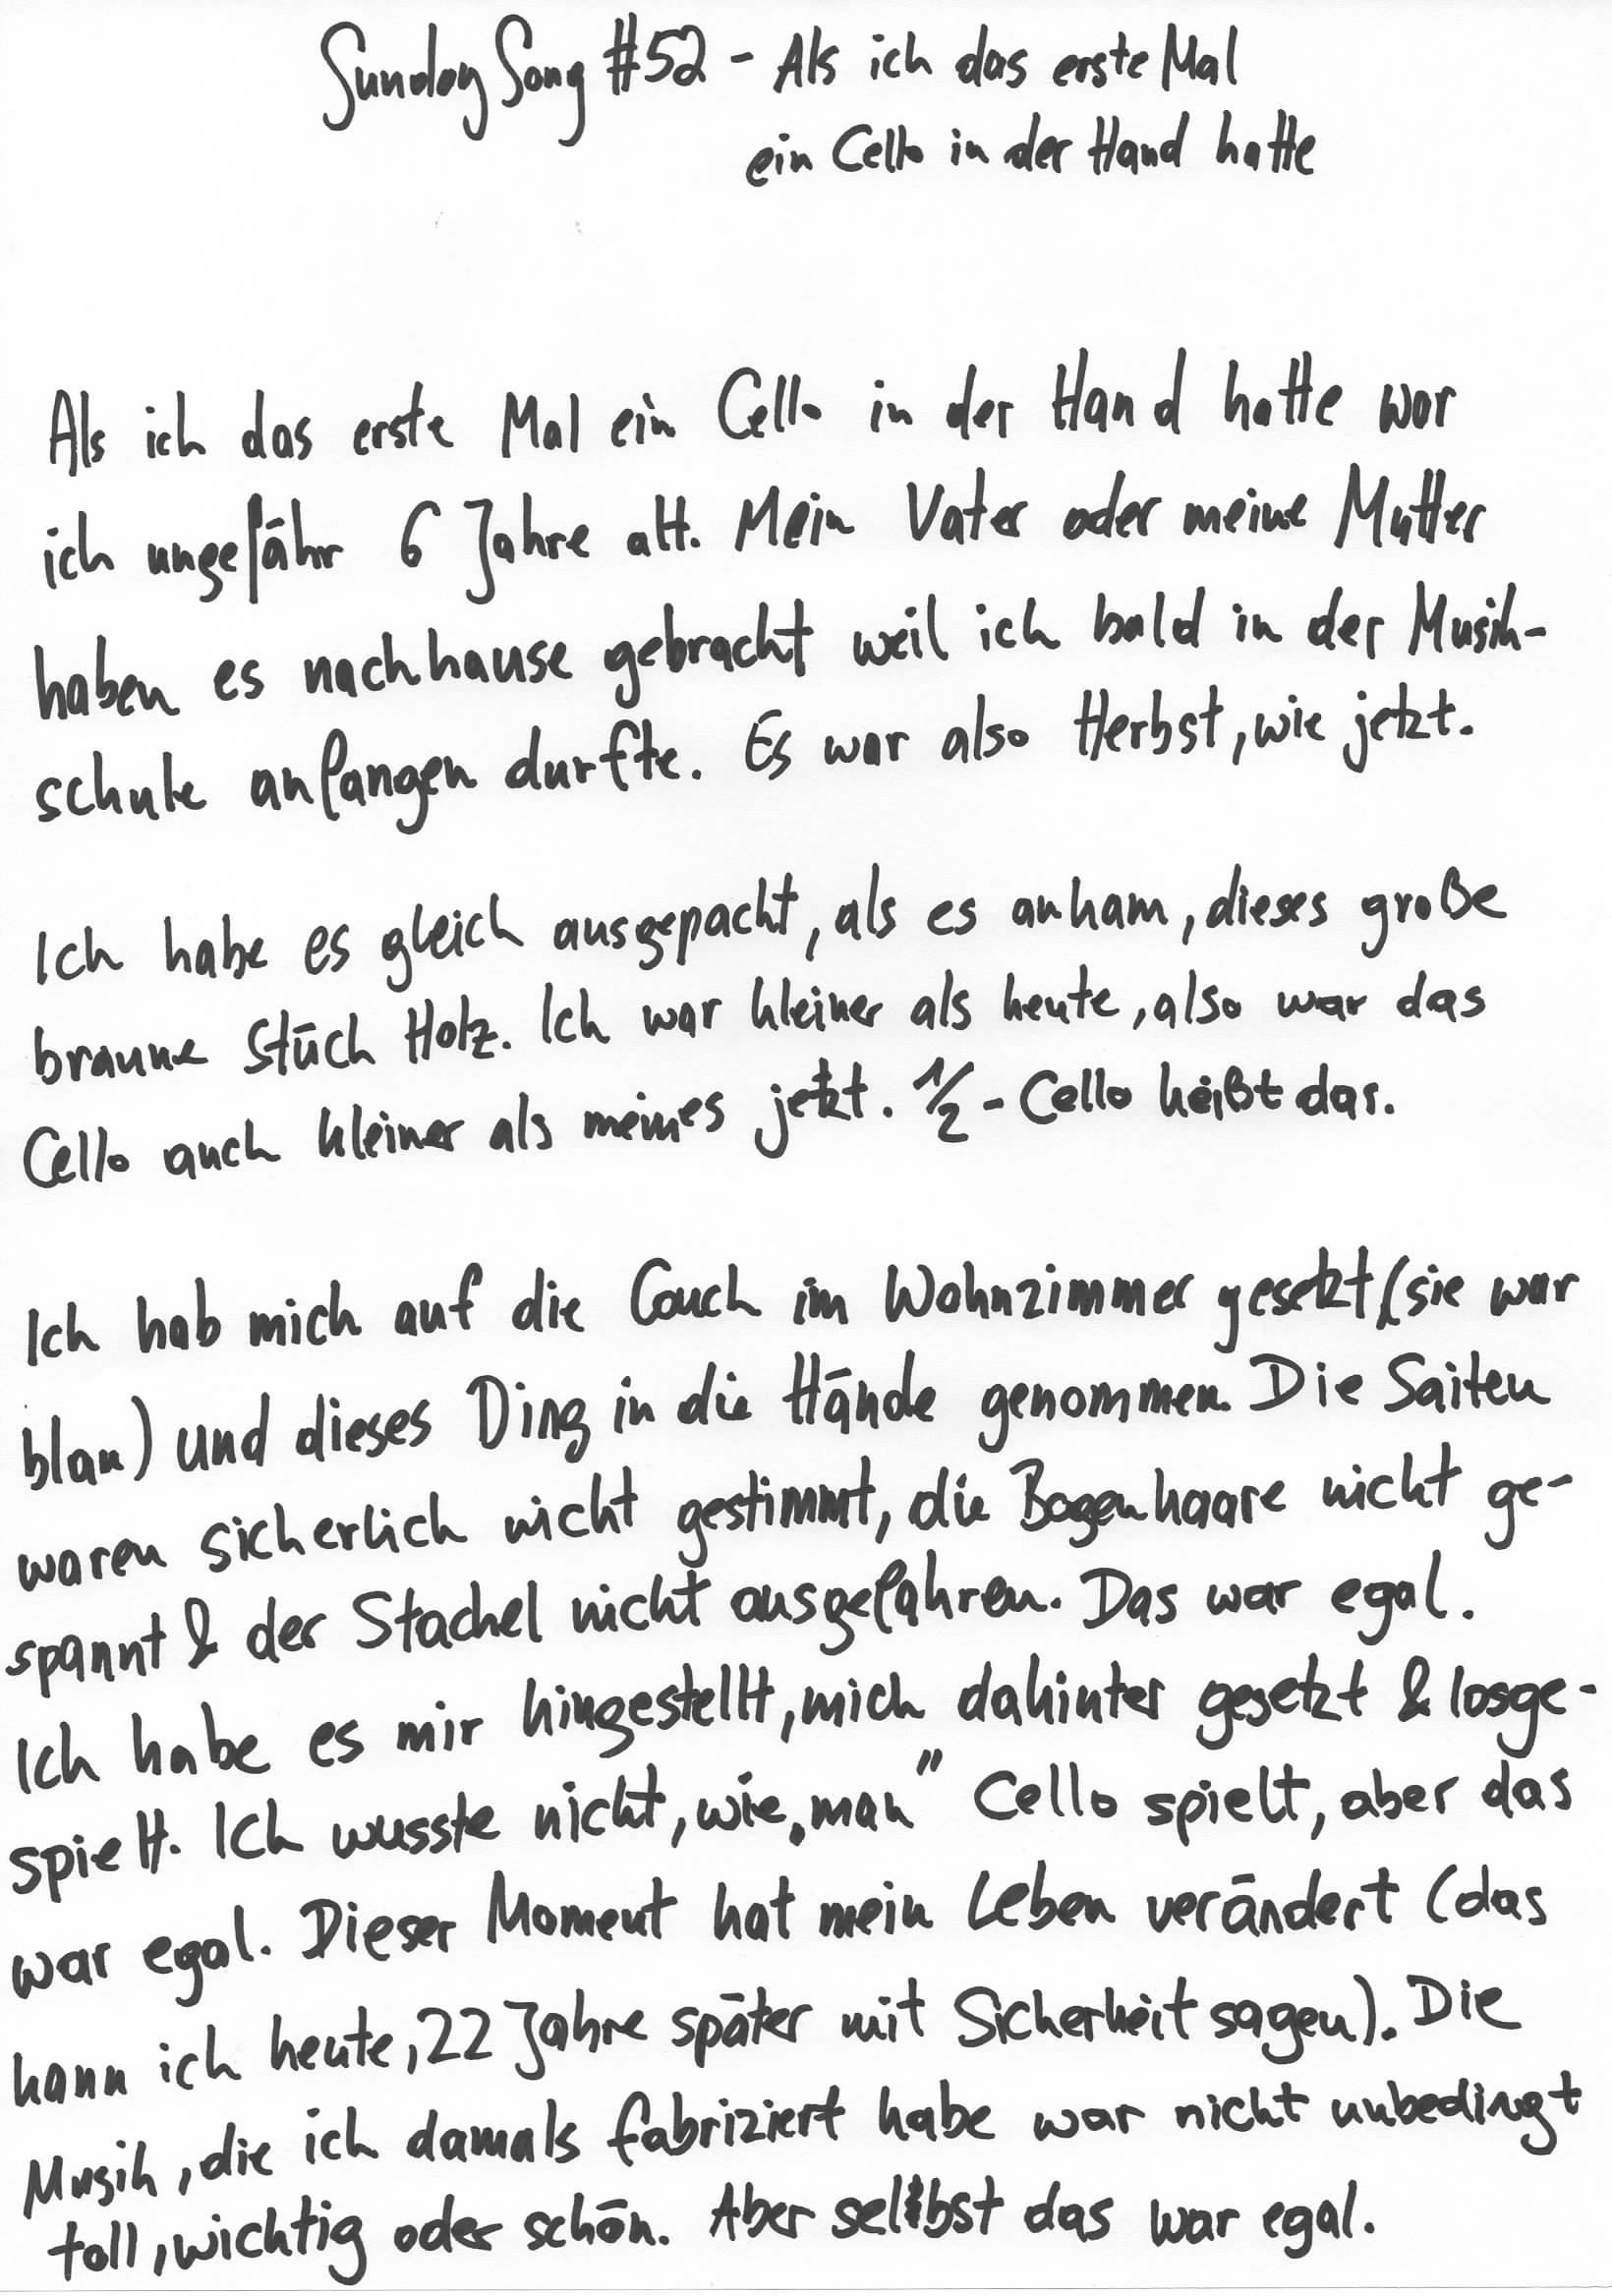 Sunday Song #52 - Als ich das erste Mal
ein Cello in der Hand hatte
Als ich das erste Mal ein Cello in der Hand hatte war
ich ungefähr 6 Jahre alt. Mein Vater oder meine Mutter
haben es nachhause gebracht weil ich bald in der Musik-
schule anfangen durfte. Es war also Herbst, wie jetzt.
Ich habe es gleich ausgepackt, als es ankam, dieses große
braune Stück Holz. Ich war kleiner als heute, also war das
Cello auch kleiner als meines jetzt. 1/2 - Cello heißt das.
Ich hab mich auf die Couch im Wohnzimmer gesetzt (sie war
blau) und dieses Ding in die Hände genommen. Die Saiten
waren sicherlich nicht gestimmt, die Bogenhaare nicht ge-
spannt & der Stachel nicht ausgefahren. Das war egal.
Ich habe es mir hingestellt, mich dahinter gesetzt & losge-
spielt. Ich wusste nicht, wie „man" Cello spielt, aber das
war egal. Dieser Moment hat mein Leben verändert (das
kann ich heute, 22 Jahre später mit Sicherheit sagen). Die
Musik, die ich damals fabriziert habe war nicht unbedingt
toll, wichtig oder schön. Aber selbst das war egal.